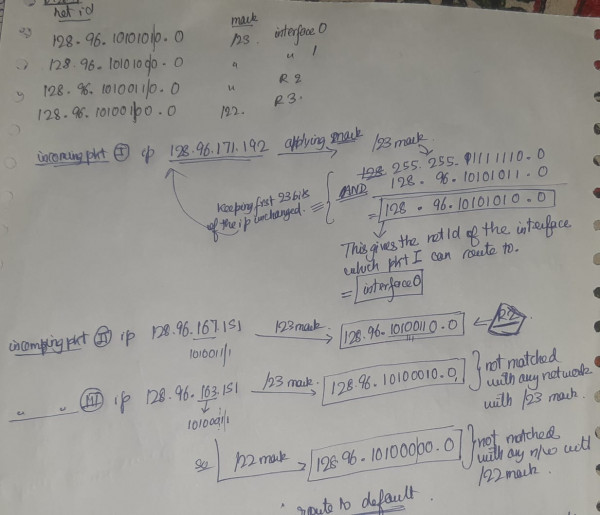 net id mask
128.96.1010101|0.0 /23 interface 0
128.96.1010100|0.0 " " 1
128.96.1010011|0.0 " R2
128.96.101001|00.0 /22. R3.
incoming pkt I ip 128.96.171.192 applying mask
/23 mask
255.255.11111110.0
AND 128.96.10101011.0
= 128.96.10101010.0
keeping first 23 bits
of the ip unchanged. =
This gives the net Id of the interface
which pkt I can route to.
= interface 0
incoming pkt II ip 128.96.167.151 /23 mask 128.96.10100110.0 R2
1010011/1
" " III ip 128.96.163.151 /23 mask. 128.96.10100010.0
1010001/1
not matched
with any network
with /23 mask.
so /22 mask 128.96.10100000.0
not matched
with any n/w with
/22 mask.
route to default.